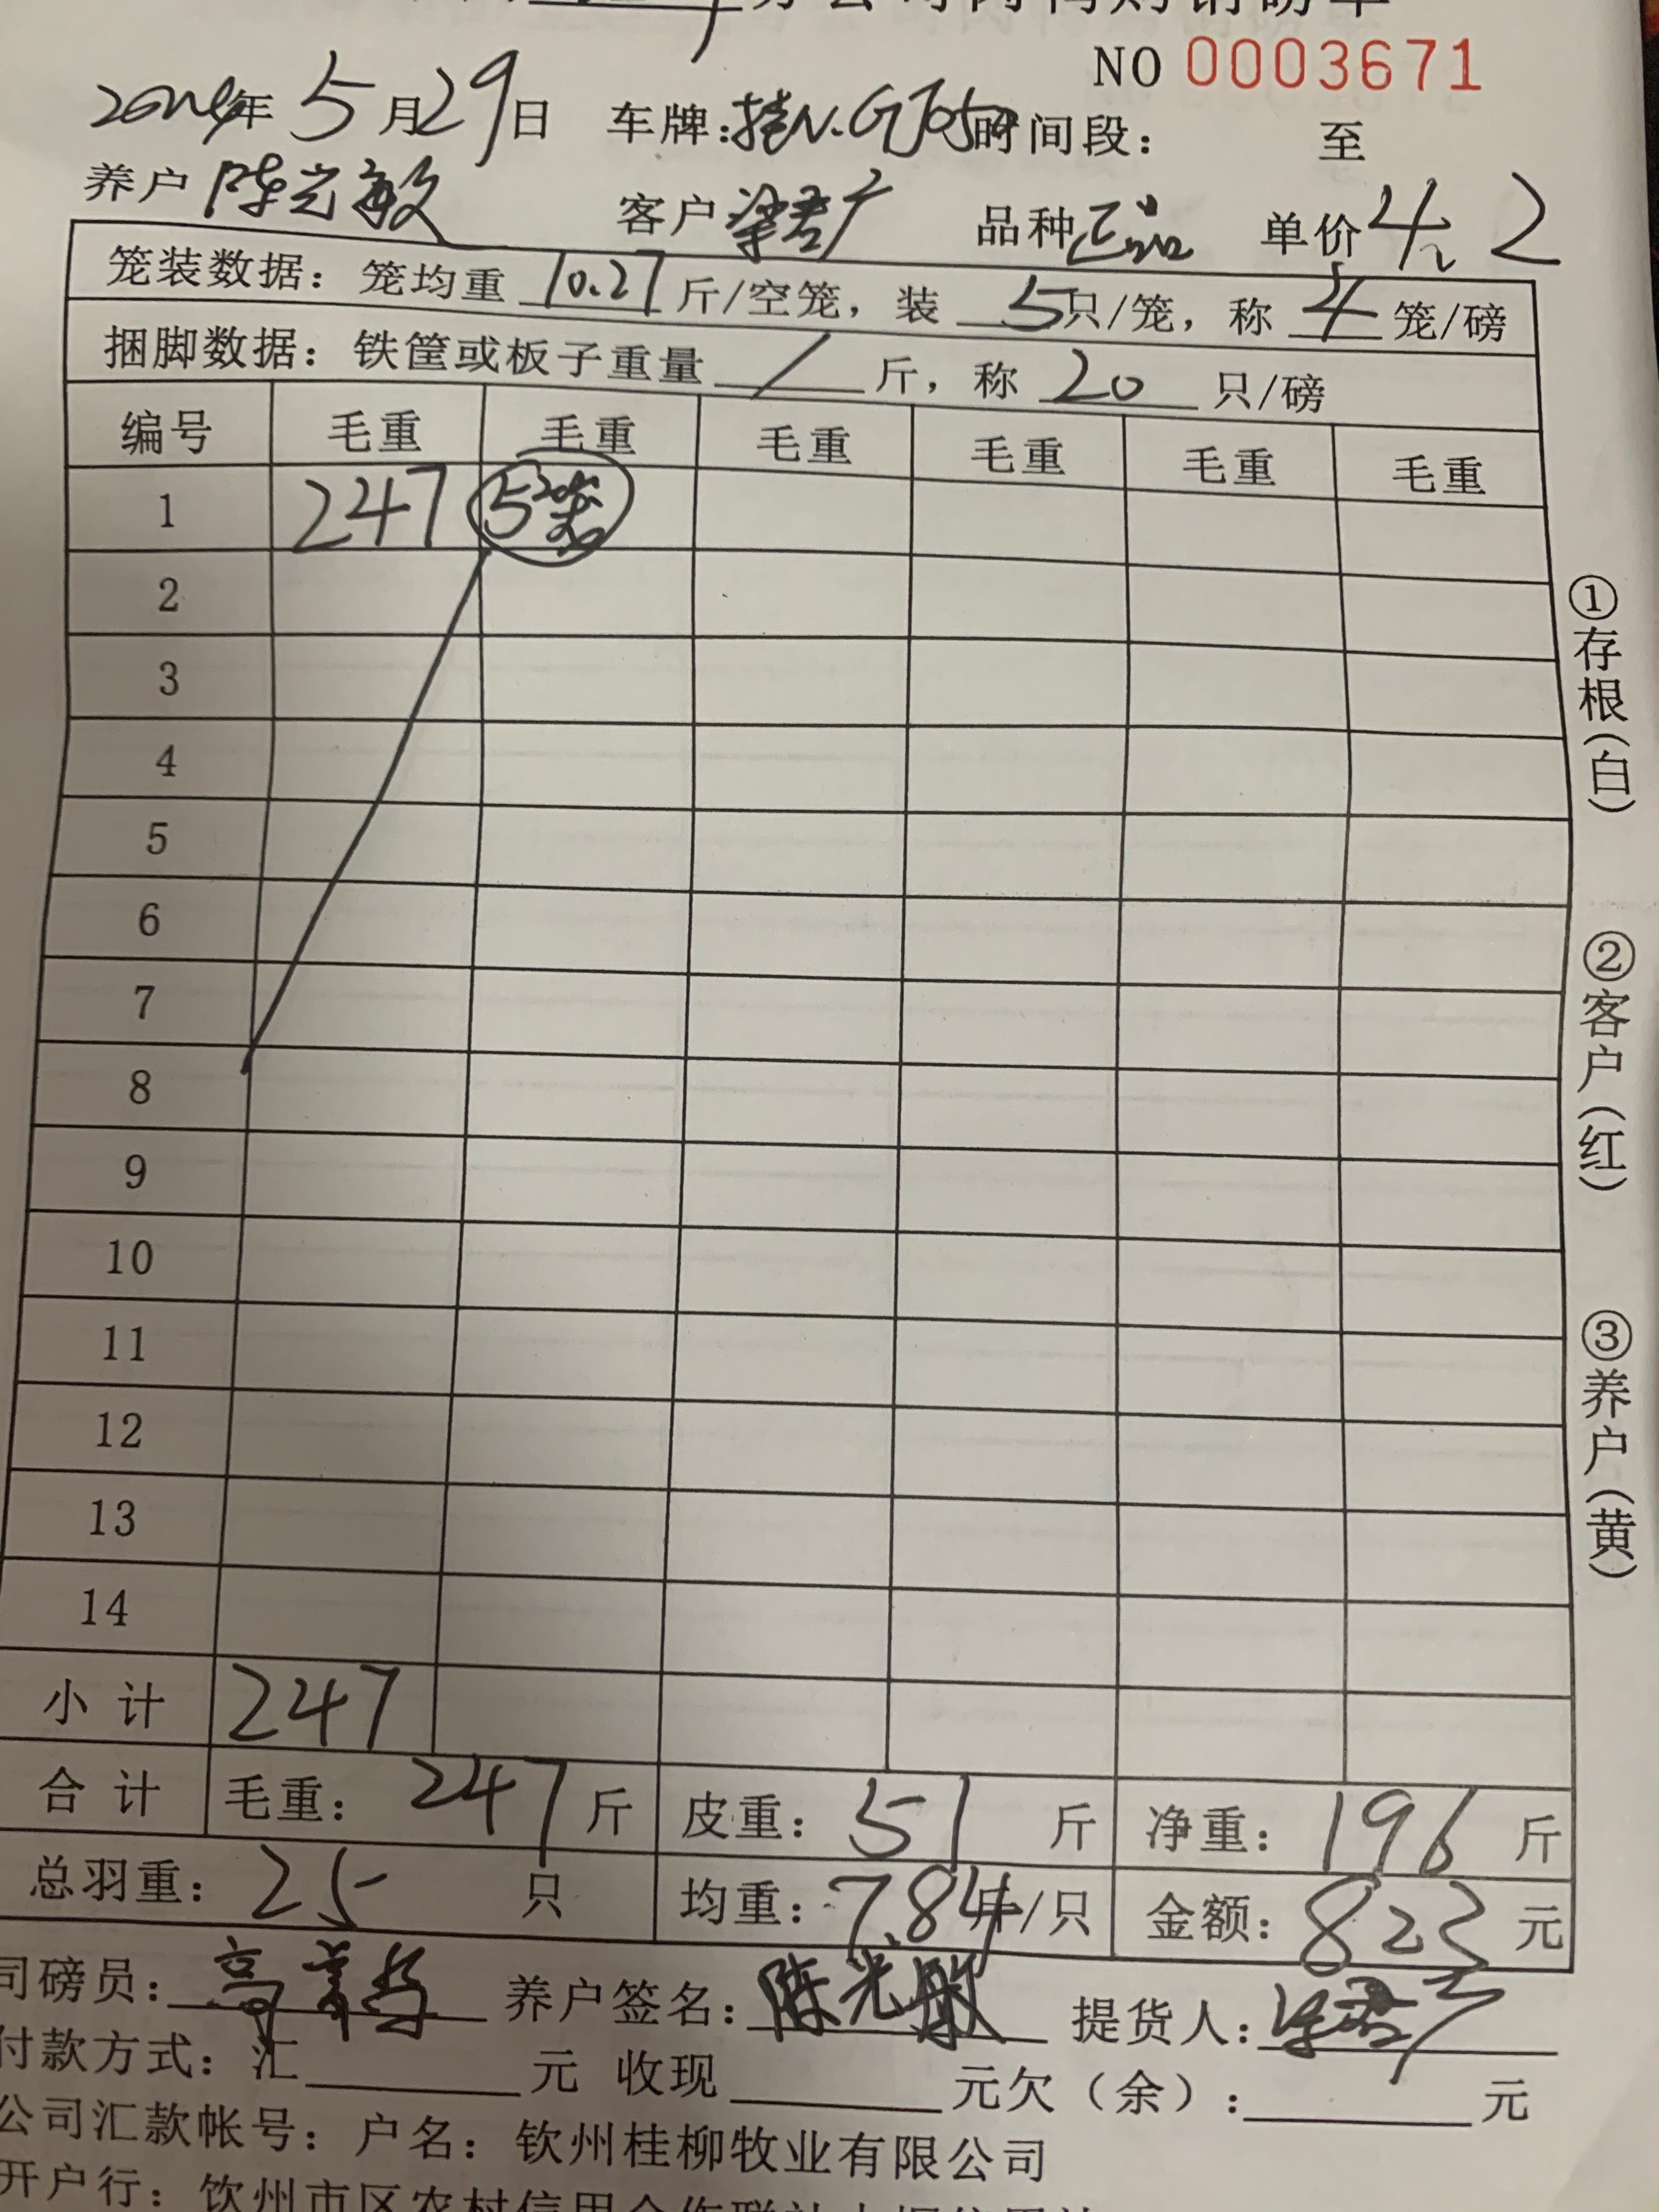 分公司肉鸭购销磅单
NO 0003671
2024年 5月29日 车牌: 桂N.GJ05 时间段: 至
养户 陈光敏 客户 梁君广 品种 正品 单价 4.2
笼装数据: 笼均重 10.27 斤/空笼, 装 5 只/笼, 称 4 笼/磅
捆脚数据: 铁筐或板子重量 / 斤, 称 20 只/磅
编号 毛重 毛重 毛重 毛重 毛重 毛重
1 247 5笼
2
3
4
5
6
7
8
9
10
11
12
13
14
小计 247
合计 毛重: 247 斤 皮重: 51 斤 净重: 196 斤
总羽重: 25 只 均重: 7.84 斤/只 金额: 823 元
司磅员: 养户签名: 陈光敏 提货人: 梁君广
付款方式: 汇 元 收现 元欠(余): 元
公司汇款帐号: 户名: 钦州桂柳牧业有限公司
开户行: 钦州市区农村信用合作联社
①存根(白)
②客户(红)
③养户(黄)